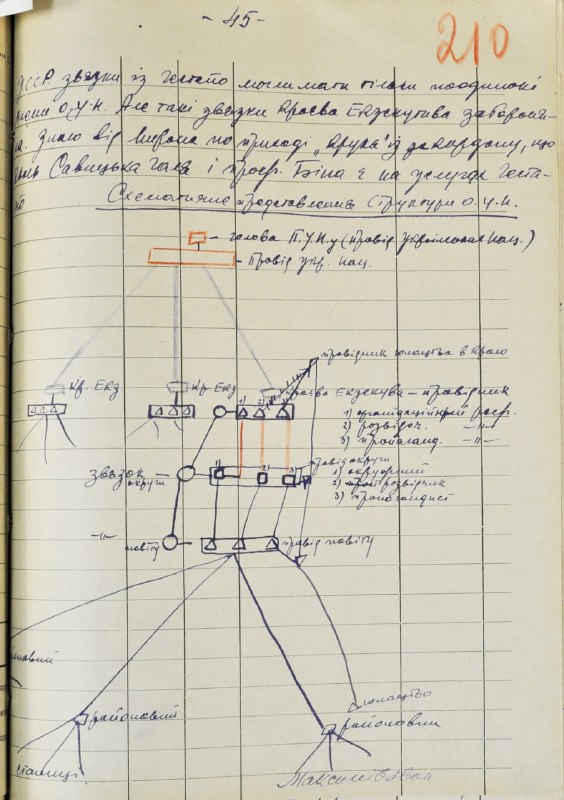 - 45 -
210
УССР. звязки із Гестапо могли мати тільки поодинокі
члени О.У.Н. Але такі звязки Краєва Екзекутива заборони-
ла. Знаю від Мирона по приході „Крука" із закордону, що
Савицька Галя і проф. Біда є на услугах Геста-
по
Схематичне представлення Структури О.У.Н.
- голова П.У.Н.у (Провід Українських Нац.)
- Провід Укр. Нац.
провідник юнацтва в Краю
Кр. Екз
Кр Екз
Краєва Екзекутива - провідник
1) організаційний реф.
2) розвідч. -"-
3) пропаганд. -"-
Звязок округи
провід округи
1) окружний
2) розвідчик
3) пропагандист
-"- повіту
провід повіту
юнацтво
районовий
районовий
станиці